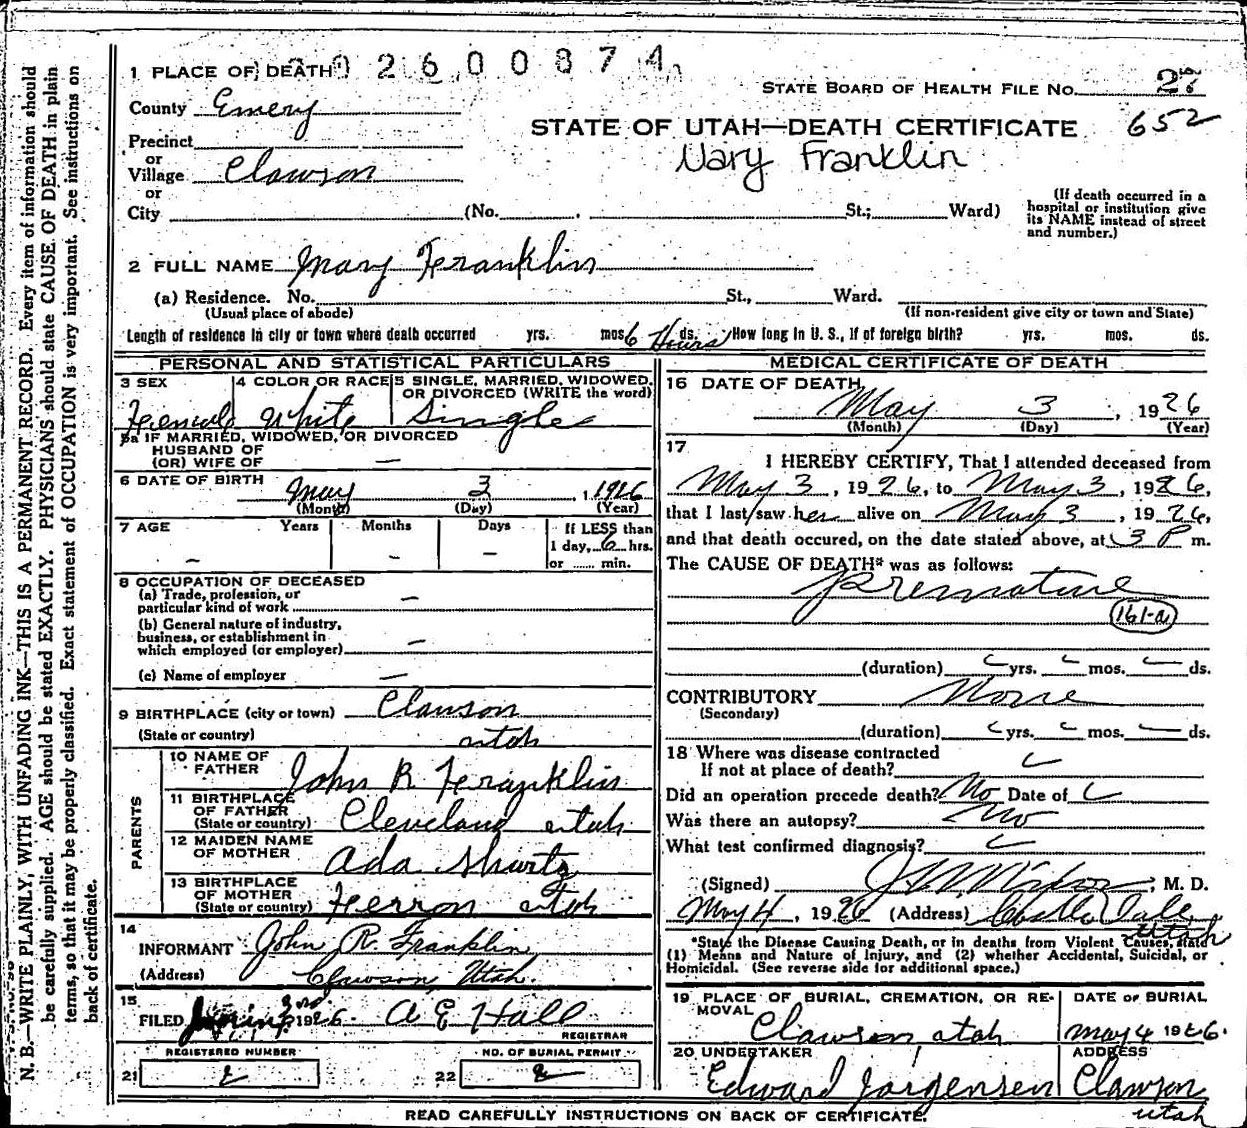 1 PLACE OF DEATH 2600874
STATE BOARD OF HEALTH FILE No. 27
County Emery
652
STATE OF UTAH—DEATH CERTIFICATE
Precinct
Mary Franklin
or
Village Clawson
or
City (No. , St.; Ward)
(If death occurred in a
hospital or institution give
its NAME instead of street
and number.)
2 FULL NAME Mary Franklin
(a) Residence. No. St., Ward.
(Usual place of abode)
(If non-resident give city or town and State)
Length of residence in city or town where death occurred yrs. mos. 6 Hours ds. How long in U. S., if of foreign birth? yrs. mos. ds.
PERSONAL AND STATISTICAL PARTICULARS
3 SEX 4 COLOR OR RACE 5 SINGLE, MARRIED, WIDOWED,
OR DIVORCED (WRITE the word)
Female White Single
5a IF MARRIED, WIDOWED, OR DIVORCED
HUSBAND OF
(OR) WIFE OF —
6 DATE OF BIRTH May 3, 1926
(Month) (Day) (Year)
7 AGE Years Months Days If LESS than
— — — 1 day, 6 hrs.
or ...... min.
8 OCCUPATION OF DECEASED
(a) Trade, profession, or
particular kind of work —
(b) General nature of industry,
business, or establishment in
which employed (or employer) —
(c) Name of employer —
9 BIRTHPLACE (city or town) Clawson
(State or country) Utah
PARENTS
10 NAME OF
FATHER John R Franklin
11 BIRTHPLACE
OF FATHER
(State or country) Cleveland Utah
12 MAIDEN NAME
OF MOTHER Ada Shurtz
13 BIRTHPLACE
OF MOTHER
(State or country) Ferron Utah
14
INFORMANT John R. Franklin
(Address) Clawson, Utah.
15
FILED 3rd 1926. A E Hall
REGISTRAR
REGISTERED NUMBER NO. OF BURIAL PERMIT
21 2 22 2
MEDICAL CERTIFICATE OF DEATH
16 DATE OF DEATH
May 3, 1926
(Month) (Day) (Year)
17
I HEREBY CERTIFY, That I attended deceased from
May 3, 1926, to May 3, 1926,
that I last saw her alive on May 3, 1926,
and that death occured, on the date stated above, at 3 P m.
The CAUSE OF DEATH* was as follows:
Premature
161-a
(duration) yrs. mos. ds.
CONTRIBUTORY None
(Secondary)
(duration) yrs. mos. ds.
18 Where was disease contracted
If not at place of death?
Did an operation precede death? No Date of
Was there an autopsy? No
What test confirmed diagnosis?
(Signed) , M. D.
May 4, 1926 (Address) Castle Dale
Utah
*State the Disease Causing Death, or in deaths from Violent Causes, state
(1) Means and Nature of Injury, and (2) whether Accidental, Suicidal, or
Homicidal. (See reverse side for additional space.)
19 PLACE OF BURIAL, CREMATION, OR RE- DATE OF BURIAL
MOVAL
Clawson, Utah May 4 1926.
20 UNDERTAKER ADDRESS
Edward Jorgensen Clawson
Utah
READ CAREFULLY INSTRUCTIONS ON BACK OF CERTIFICATE.
N. B.—WRITE PLAINLY, WITH UNFADING INK—THIS IS A PERMANENT RECORD. Every item of information should
be carefully supplied. AGE should be stated EXACTLY. PHYSICIANS should state CAUSE OF DEATH in plain
terms, so that it may be properly classified. Exact statement of OCCUPATION is very important. See instructions on
back of certificate.